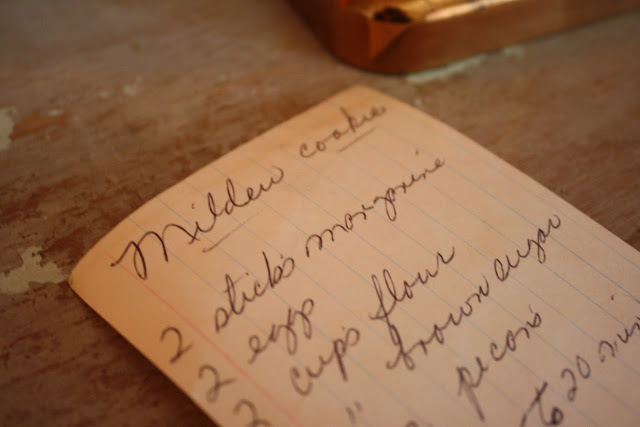 Mildew cookie
2 sticks margarine
2 eggs
2 cups flour
" brown sugar
pecans
to 20 min